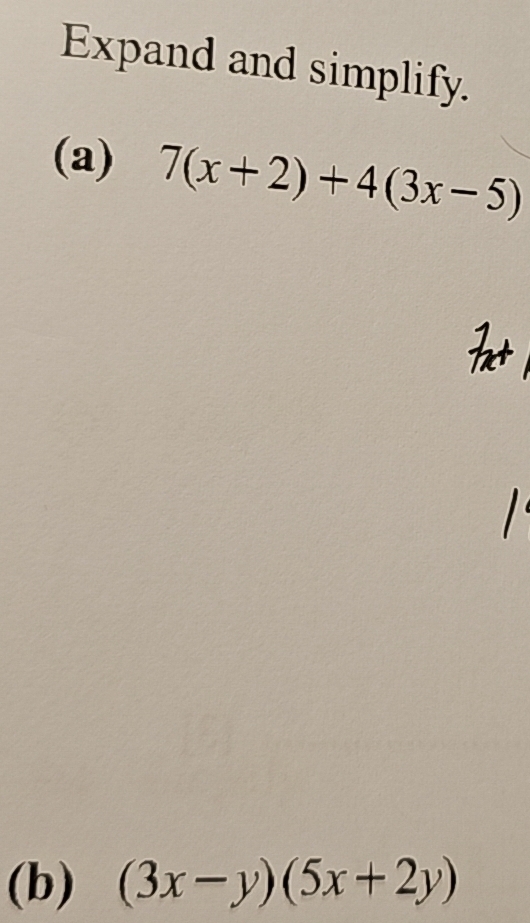 Expand and simplify.
(a) 7(x+2)+4(3x−5)
7x+
(b) (3x−y)(5x+2y)